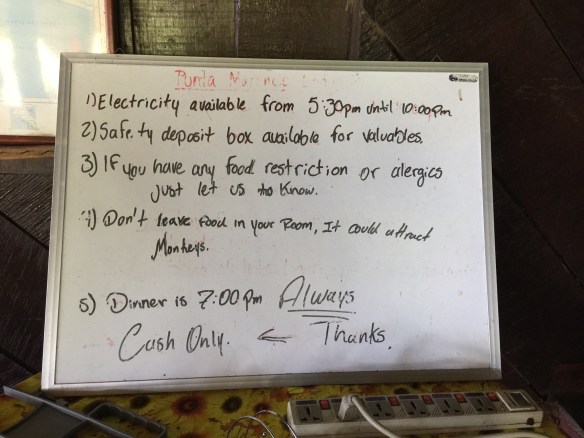 Punta
1) Electricity available from 5:30pm until 10:00pm
2) Safety deposit box available for valuables.
3) If you have any food restriction or alergics
just let us to know.
4) Don't leave food in your Room, It could attract
Monkeys.
5) Dinner is 7:00pm Always
Cash Only. ← Thanks.